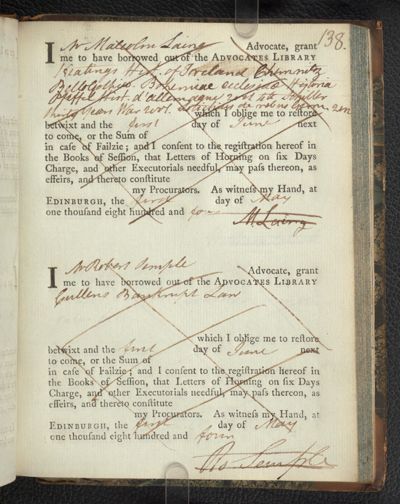 138.
I Mr Malcolm Laing Advocate, grant
me to have borrowed out of the ADVOCATES LIBRARY
Keatings Hist. of Ireland Chemnitz
Bohemiae ecclesiastica Historia
Pfeffel Hist. d'allemagne 2 vols
which I oblige me to restore
betwixt and the first day of June next
to come, or the Sum of
in case of Failzie; and I consent to the registration hereof in
the Books of Session, that Letters of Horning on six Days
Charge, and other Executorials needful, may pass thereon, as
effeirs, and thereto constitute
my Procurators. As witness my Hand, at
EDINBURGH, the first day of May
one thousand eight hundred and four
M Laing
I Mr Robert Semple Advocate, grant
me to have borrowed out of the ADVOCATES LIBRARY
Cullens Bankrupt Law
which I oblige me to restore
betwixt and the first day of June next
to come, or the Sum of
in case of Failzie; and I consent to the registration hereof in
the Books of Session, that Letters of Horning on six Days
Charge, and other Executorials needful, may pass thereon, as
effeirs, and thereto constitute
my Procurators. As witness my Hand, at
EDINBURGH, the first day of May
one thousand eight hundred and four
Ro Semple